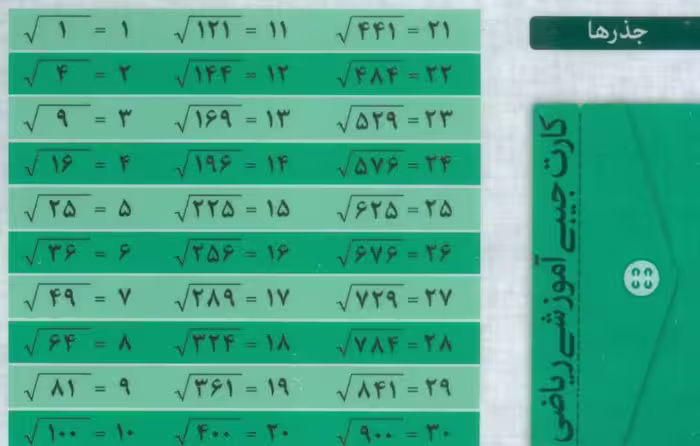 جذرها
√۱ = ۱ √۱۲۱ = ۱۱ √۴۴۱ = ۲۱
√۴ = ۲ √۱۴۴ = ۱۲ √۴۸۴ = ۲۲
√۹ = ۳ √۱۶۹ = ۱۳ √۵۲۹ = ۲۳
√۱۶ = ۴ √۱۹۶ = ۱۴ √۵۷۶ = ۲۴
√۲۵ = ۵ √۲۲۵ = ۱۵ √۶۲۵ = ۲۵
√۳۶ = ۶ √۲۵۶ = ۱۶ √۶۷۶ = ۲۶
√۴۹ = ۷ √۲۸۹ = ۱۷ √۷۲۹ = ۲۷
√۶۴ = ۸ √۳۲۴ = ۱۸ √۷۸۴ = ۲۸
√۸۱ = ۹ √۳۶۱ = ۱۹ √۸۴۱ = ۲۹
√۱۰۰ = ۱۰ √۴۰۰ = ۲۰ √۹۰۰ = ۳۰
کارت جیبی آموزشی ریاضی